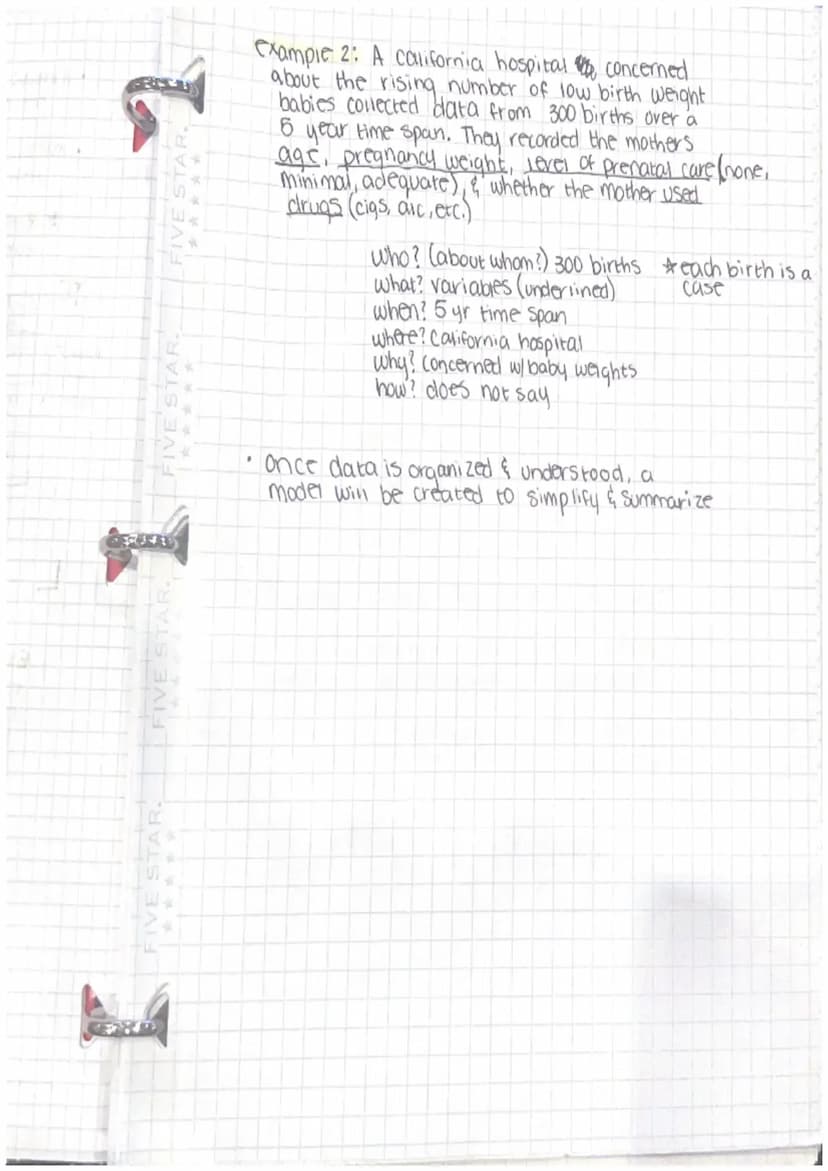 Example 2: A california hospital concerned
about the rising number of low birth weight
babies collected data from 300 births over a
5 year time span. They recorded the mothers
age, pregnancy weight, level of prenatal care (none,
minimal, adequate), & whether the mother used
drugs (cigs, alc, etc.)
Who? (about whom?) 300 births *each birth is a
case
what? variables (underlined)
when? 5 yr time span
where? California hospital
why? concerned w/ baby weights
how? does not say
• Once data is organized & understood, a
model will be created to simplify & summarize
FIVE STAR.
FIVE STAR.
FIVE STAR.
FIVE STAR.